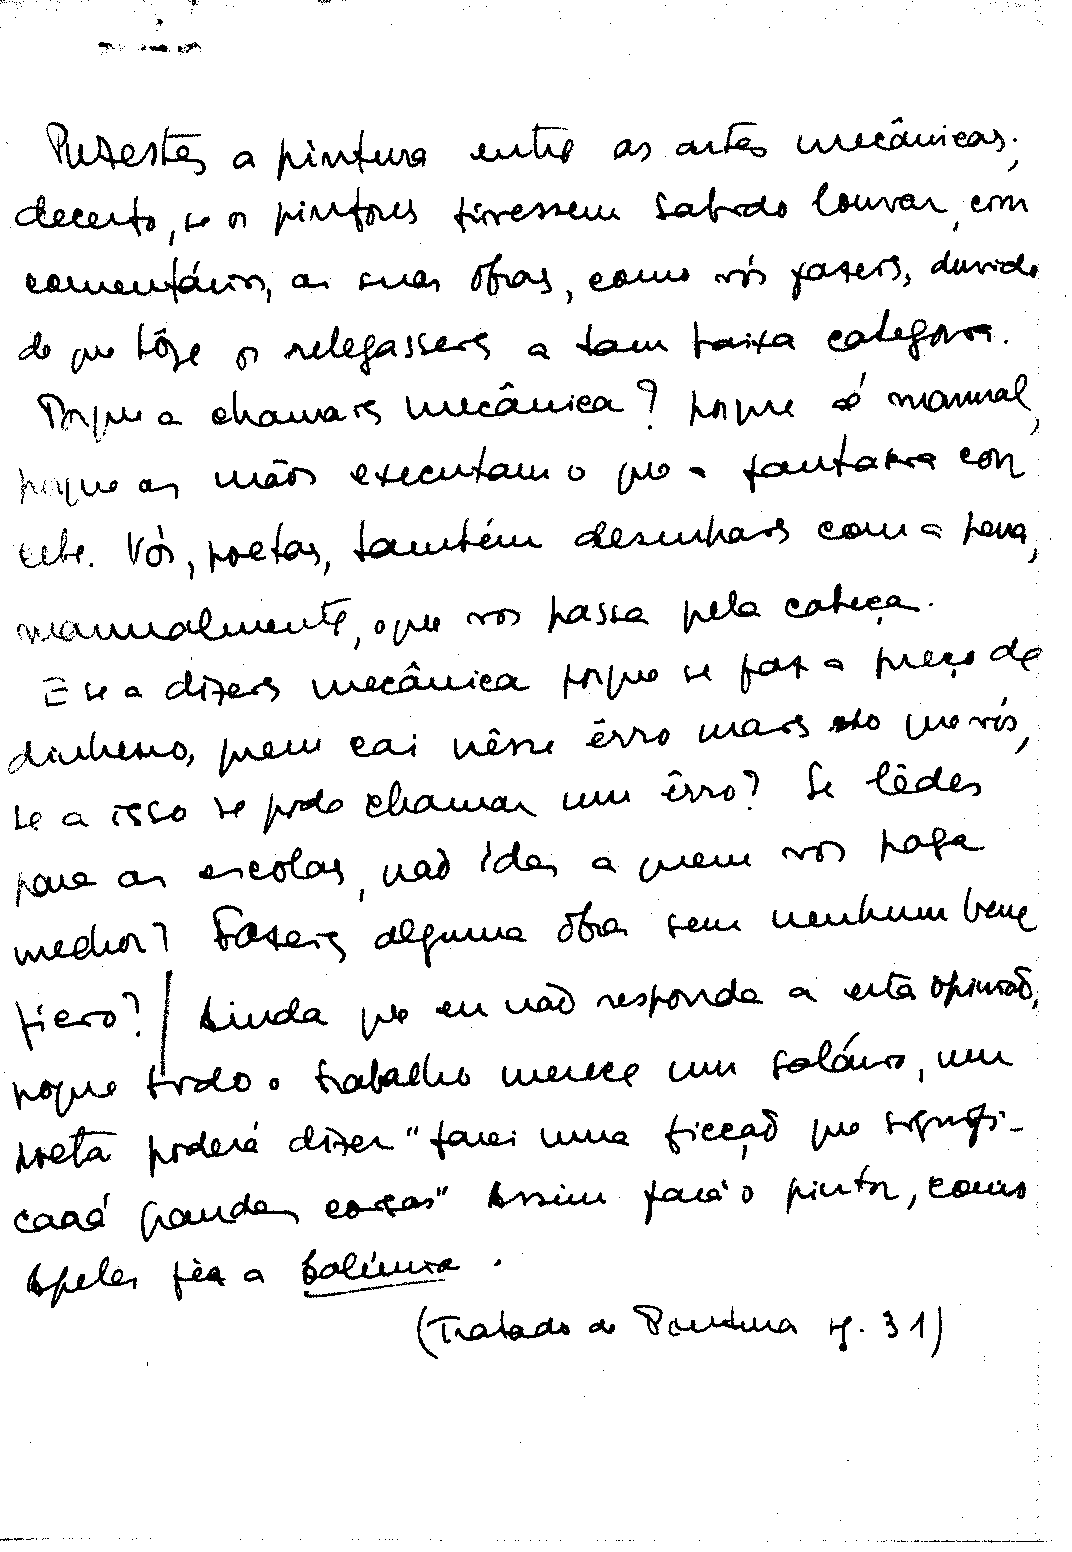 Puzestes a pintura entre as artes mecânicas;
decerto, se os pintores tivessem sabido louvar, com
comentários, as suas óbras, como vós fazeis, duvido
de que hôje os relegasseis a tam baixa categoria.
Porque a chamais mecânica? porque é manual,
porque as mãos executam o que a fantasia con
cebe. Vós, poetas, também desenhais com a pena,
manualmente, o que vos passa pela cabeça.
E se a dizeis mecânica porque se faz a preço de
dinheiro, quem cai nêsse êrro mais do que vós,
se a isso se pode chamar um êrro? Se lêdes
para as escolas, não ides a quem vos paga
melhor? Fazeis alguma óbra sem nenhum bene
fício? / Ainda que eu não responda a esta opinião,
porque todo o trabalho merece um salário, um
poeta poderá dizer "farei uma ficção que signifi-
cará grandes coisas" Assim fará o pintor, como
Apeles fêz a Calúnia.
(Tratado de Pintura pg. 31)